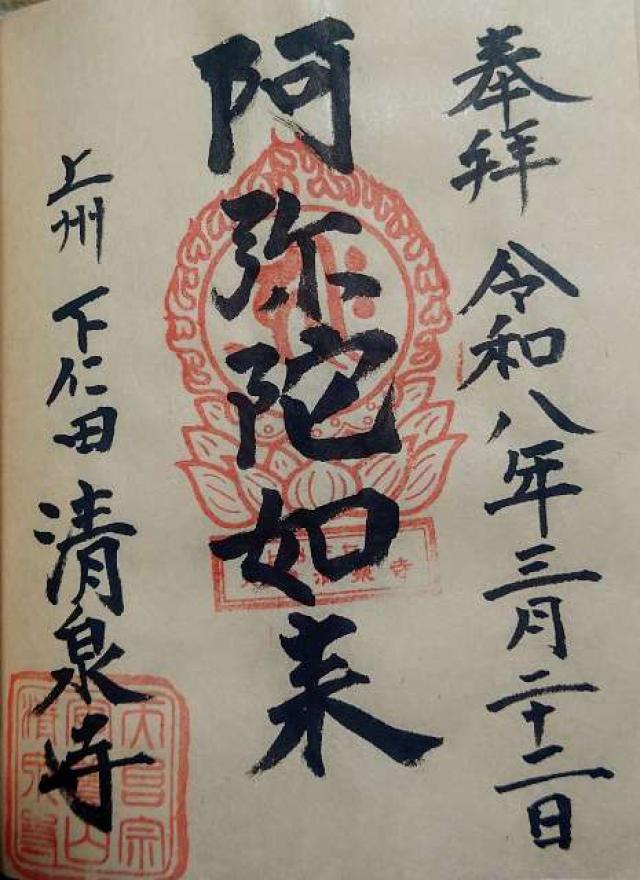 奉拝 令和八年三月二十二日
阿弥陀如来
上州 下仁田 清泉寺